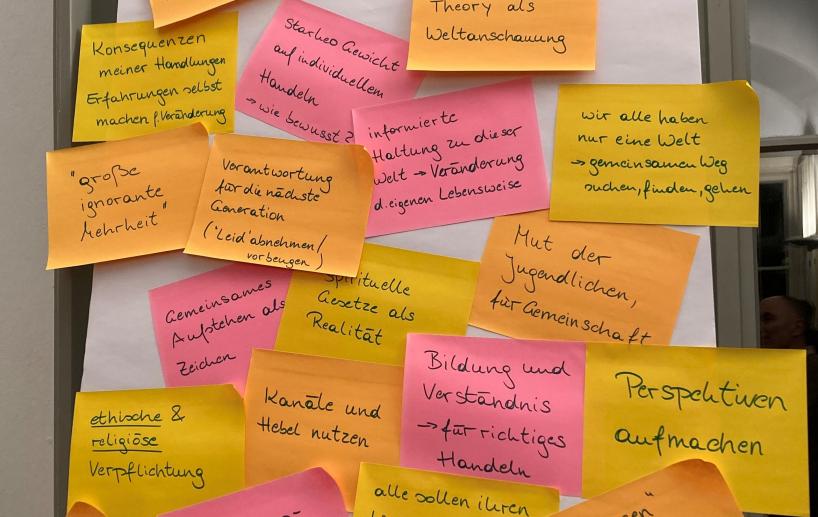 Theory als
Weltanschauung
Konsequenzen
meiner Handlungen
Erfahrungen selbst
machen f. Veränderung
Starkes Gewicht
auf individuellem
Handeln
→ wie bewusst
informierte
Haltung zu dieser
Welt → Veränderung
d. eigenen Lebensweise
wir alle haben
nur eine Welt
→ gemeinsamen Weg
suchen, finden, gehen
"große
ignorante
Mehrheit"
Verantwortung
für die nächste
Generation
("Leid" abnehmen/
vorbeugen)
Mut der
Jugendlichen,
für Gemeinschaft
Gemeinsames
Aufstehen als
Zeichen
Spirituelle
Gesetze als
Realität
Bildung und
Verständnis
→ für richtiges
Handeln
Perspektiven
aufmachen
Kanäle und
Hebel nutzen
ethische &
religiöse
Verpflichtung
alle sollen ihren